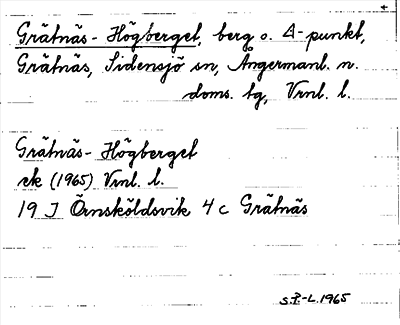 Grätnäs-Högberget, berg o. Δ-punkt,
Grätnäs, Sidensjö sn, Ångermanl. n.
doms. tg, Vrnl. l.
Grätnäs-Högberget
ek (1965) Vrnl. l.
19 J Örnsköldsvik 4 c Grätnäs
S.P-L. 1965